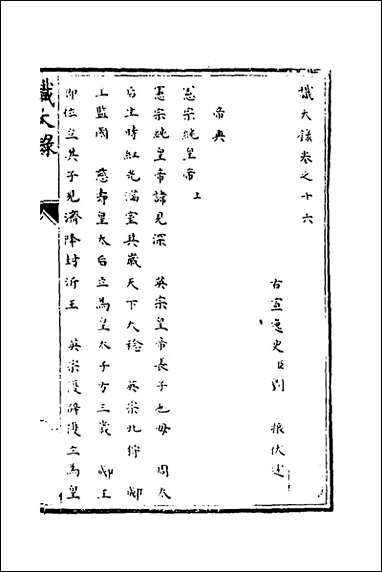 識大錄卷之十六
古宣逸史臣劉　振伏述
帝典
憲宗純皇帝上
憲宗純皇帝諱見深　英宗皇帝長子也母　周太
后生時紅光滿室其歲天下大稔　英宗北狩　郕
王監國　慈壽皇太后立為皇太子方三歲　郕王
即位立其子見濟降封沂王　英宗復辟復立為皇
識大錄